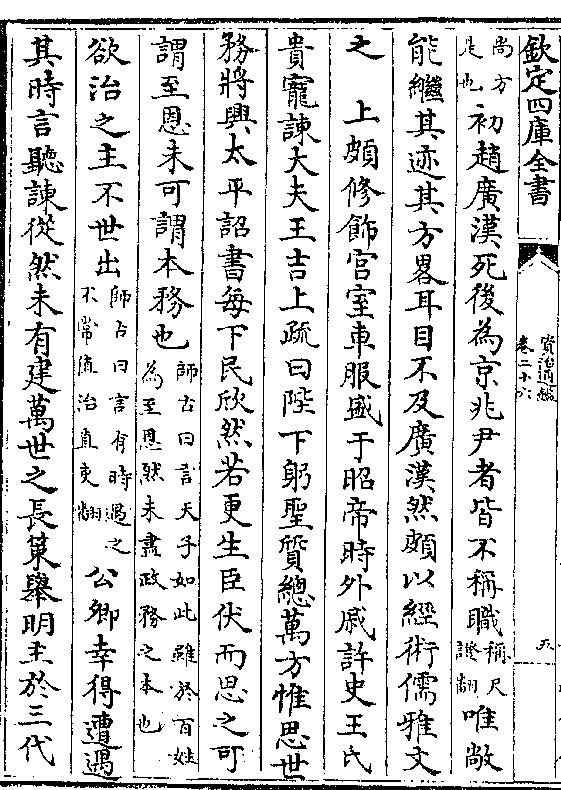 欽定四庫全書
資治通鑑
卷二十六
五
尚方是也初趙廣漢死後為京兆尹者皆不稱職稱尺證翻唯敞
能繼其迹其方畧耳目不及廣漢然頗以經術儒雅文
之 上頗修飾宮室車服盛于昭帝時外戚許史王氏
貴寵諫大夫王吉上疏曰陛下躬聖質總萬方惟思世
務將興太平詔書每下民欣然若更生臣伏而思之可
謂至恩未可謂本務也師古曰言天子如此雖於百姓為至恩然未盡政務之本也
欲治之主不世出師古曰言有時遇之不常值治直吏翻公卿幸得遭遇
其時言聽諫從然未有建萬世之長策舉明主於三代